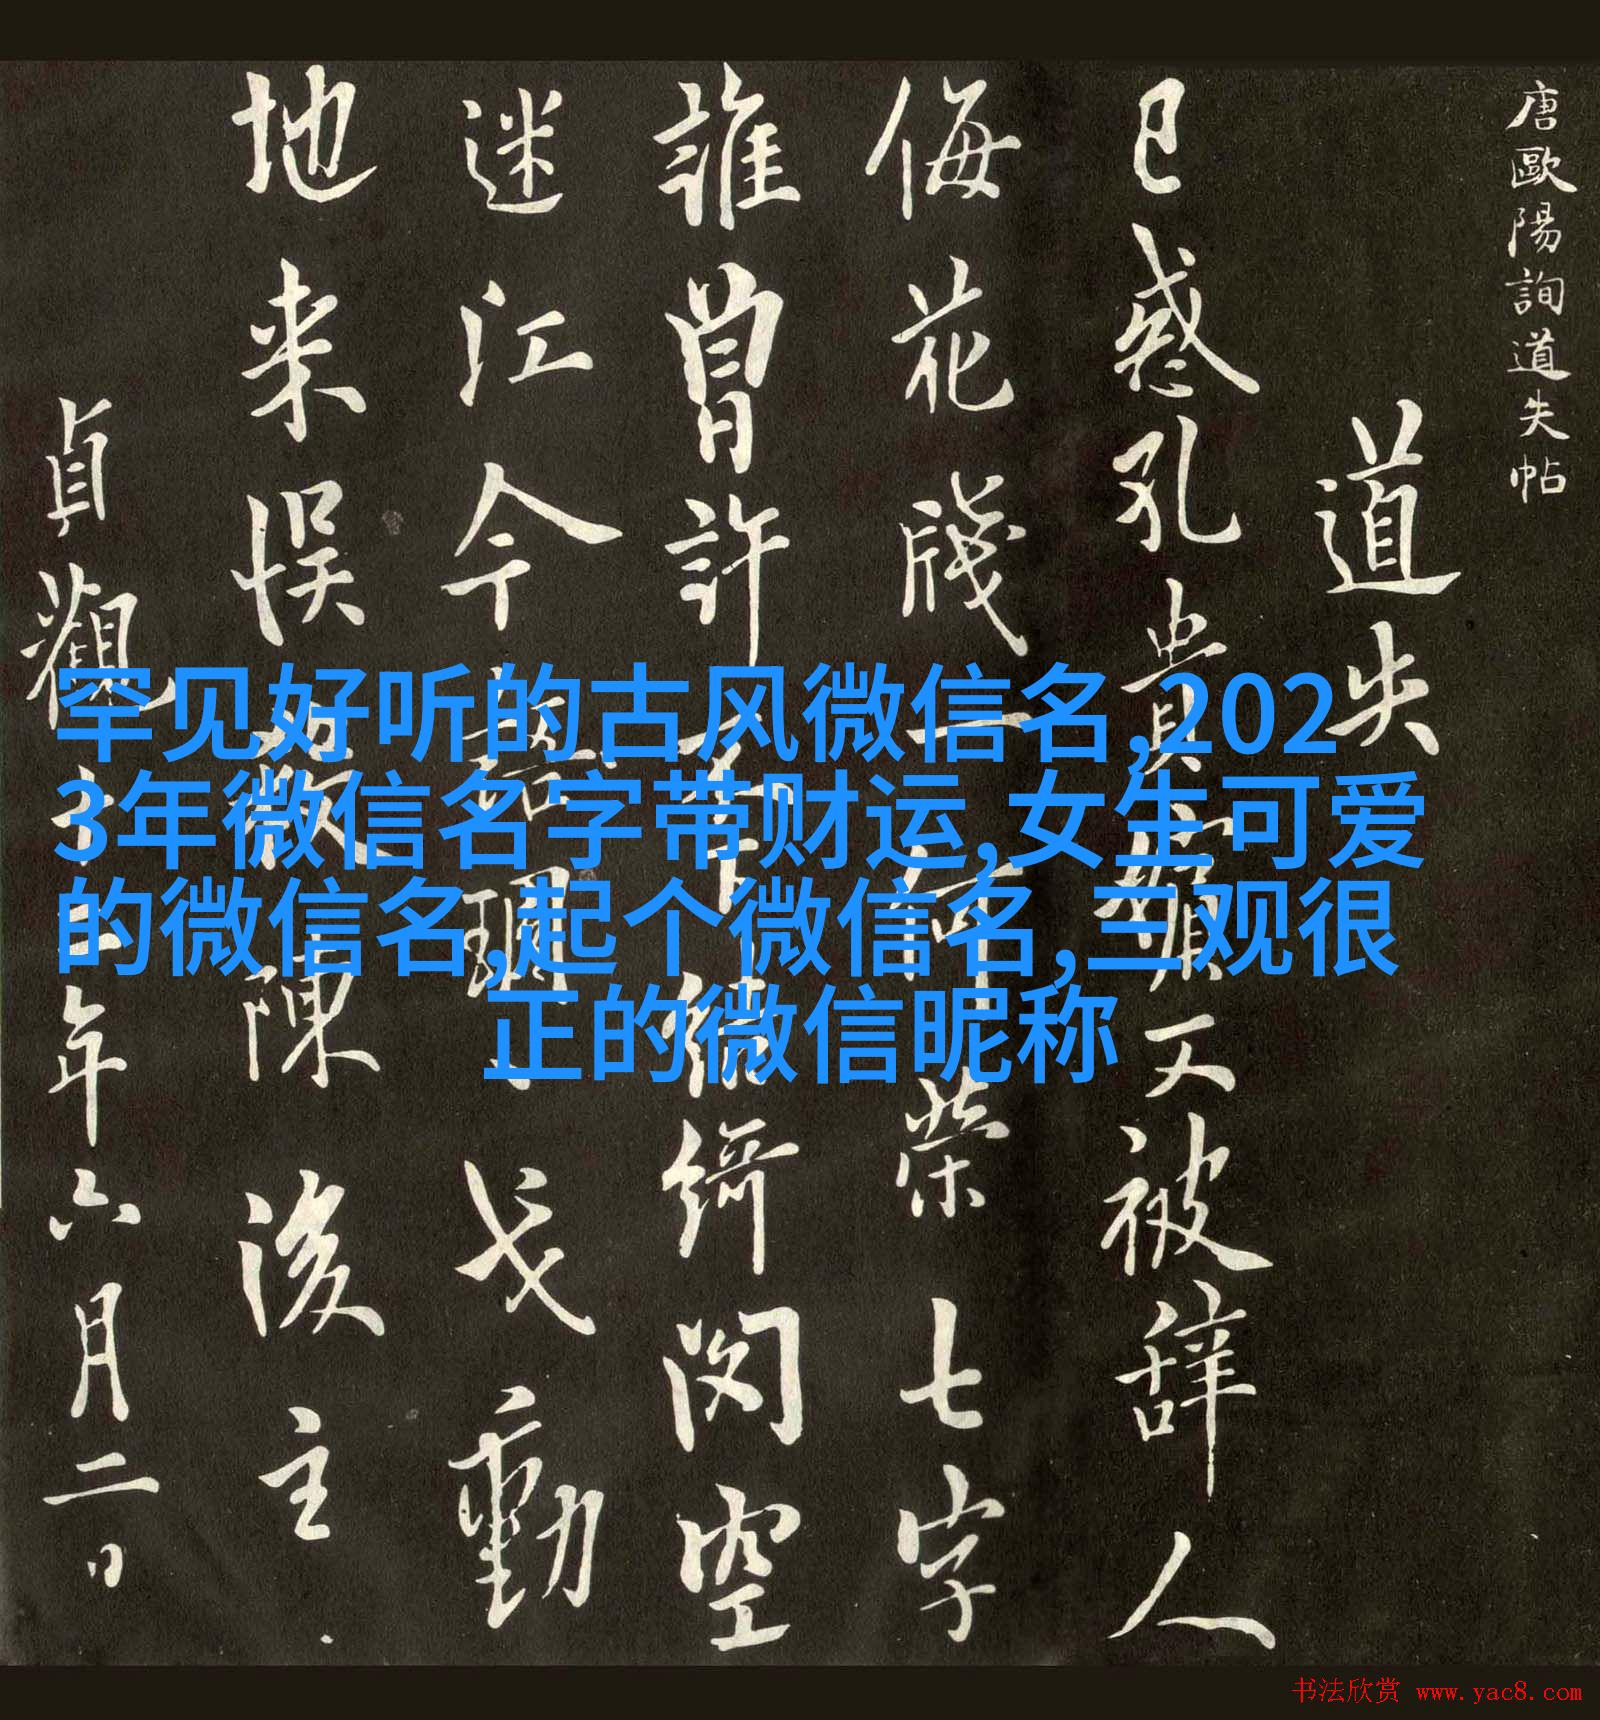 唐歐陽詢道失帖
道失
已惑孔貴嬪又被辞人
侮花牋一何荣七字
誰曾許不結綺閔空
迷江令語戈動
地来悮殺陳後主
貞觀年六月二日
罕见好听的古风微信名,202
3年微信名字带财运,女生可爱
的微信名,起个微信名,三观很
正的微信昵称
书法欣赏 www.yac8.com